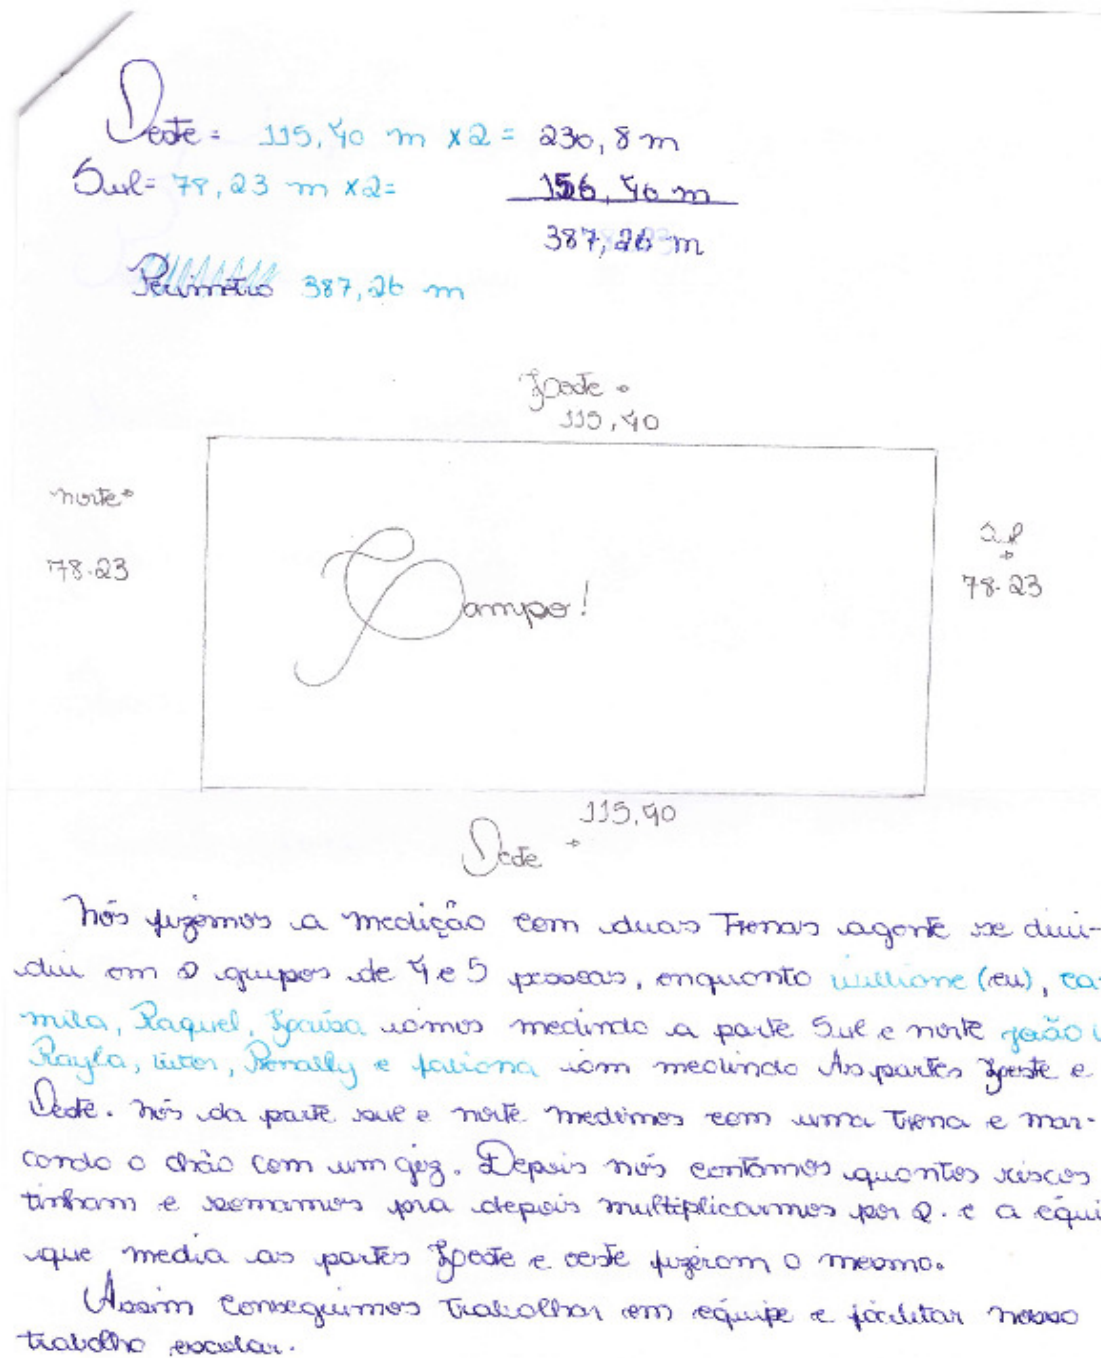 Oeste = 115,40 m x2 = 230,8 m
Sul = 78,23 m x2= 156,46 m
387,26 m
Perímetro 387,26 m
Leste
115,40
norte
78.23
Campo!
sul
78.23
115,40
Oeste
Nós fizémos a medição com duas Trenas agente se divi-
diu em 2 grupos de 4 e 5 pessoas, enquanto williane (eu), ca-
mila, Raquel, vamos medindo a parte Sul e norte joão
Rayla, vitor, e fabiana vam medindo As partes Leste e
Oeste. nós da parte sul e norte medimos com uma Trena e mar-
cando o chão com um giz. Depois nós contamos quantos riscos
tinham e somamos pra depois multiplicarmos por 2. e a équi
que media as partes Leste e oeste fizeram o mesmo.
Assim conseguimos Trabalhar em équipe e facilitar nosso
trabalho escolar.